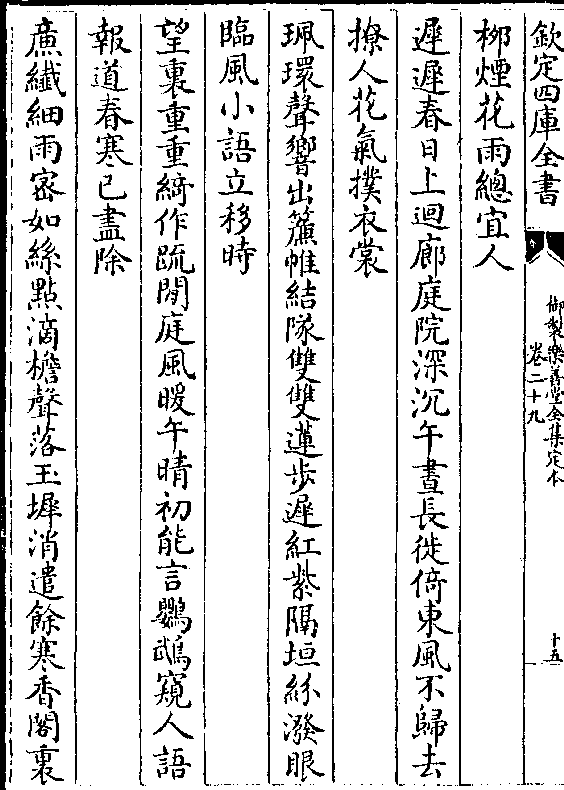 欽定四庫全書
御製樂善堂全集定本
卷二十九
十五
柳煙花雨總宜人
遲遲春日上迴廊庭院深沉午晝長徙倚東風不歸去
撩人花氣撲衣裳
珮環聲響出簾帷結隊雙雙蓮步遲紅紫隔垣紛潑眼
臨風小語立移時
望裏重重綺作疏閒庭風暖午晴初能言鸚鵡窺人語
報道春寒已盡除
廉纖細雨密如絲點滴檐聲落玉墀消遣餘寒香閣裏